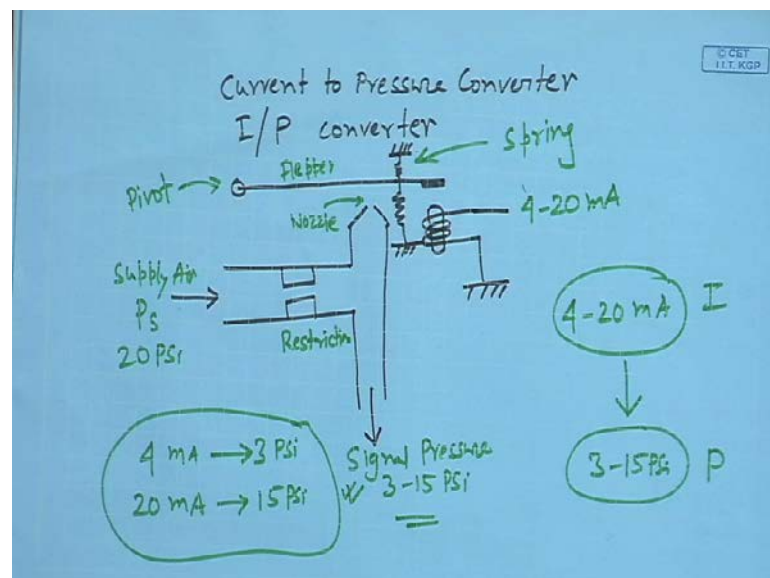 © CET
I.I.T. KGP
Current to Pressure Converter
I/P converter
Spring
Flapper
Pivot
Nozzle
4-20 mA
Supply Air
Ps
20 PSi
Restriction
4-20 mA I
4 mA → 3 PSi
20 mA → 15 PSi
Signal Pressure
3-15 PSi
3-15 PSi P